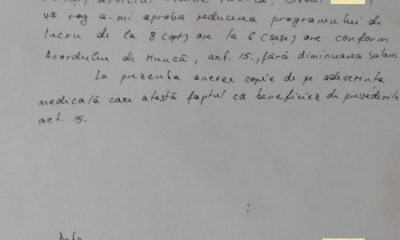 vă rog a-mi aproba reducerea programului de
lucru de la 8 (opt) ore la 6 (șase) ore conform
Acordului de Muncă, art. 15., fără diminuarea salari
La prezenta anexez copie de pe adeverința
medicală care atestă faptul că beneficiez de prevederile
art. 15.